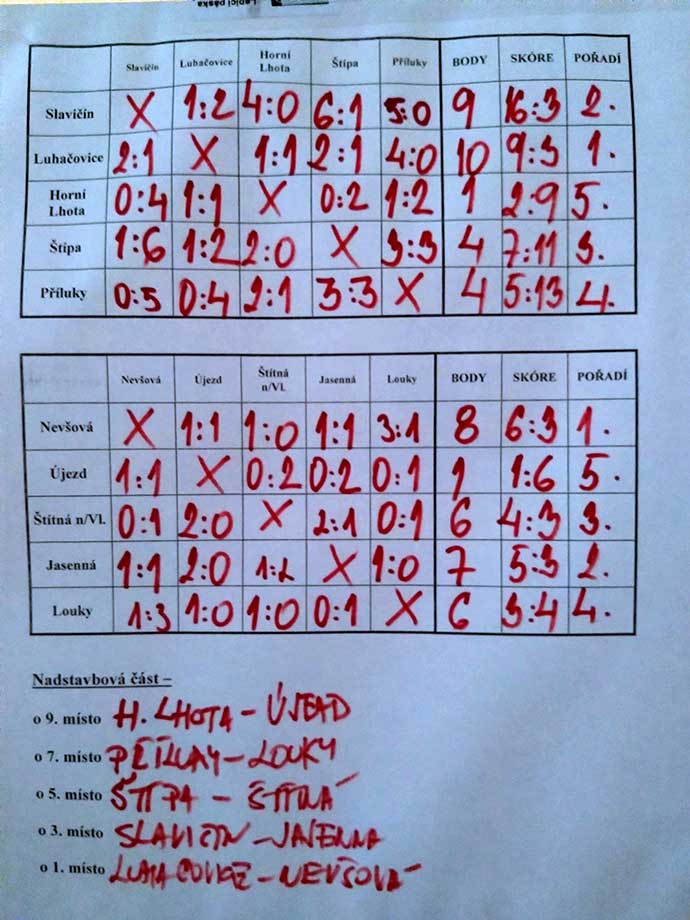 Lepicí páska
Slavičín Luhačovice Horní Lhota Štípa Příluky BODY SKÓRE POŘADÍ
Slavičín X 1:2 4:0 6:1 5:0 9 16:3 2.
Luhačovice 2:1 X 1:1 2:1 4:0 10 9:3 1.
Horní Lhota 0:4 1:1 X 0:2 1:2 1 2:9 5.
Štípa 1:6 1:2 2:0 X 3:3 4 7:11 3.
Příluky 0:5 0:4 2:1 3:3 X 4 5:13 4.
Nevšová Újezd Štítná n/Vl. Jasenná Louky BODY SKÓRE POŘADÍ
Nevšová X 1:1 1:0 1:1 3:1 8 6:3 1.
Újezd 1:1 X 0:2 0:2 0:1 1 1:6 5.
Štítná n/Vl. 0:1 2:0 X 2:1 0:1 6 4:3 3.
Jasenná 1:1 2:0 1:2 X 1:0 7 5:3 2.
Louky 1:3 1:0 1:0 0:1 X 6 3:4 4.
Nadstavbová část –
o 9. místo H. LHOTA – ÚJEZD
o 7. místo PŘÍLUKY – LOUKY
o 5. místo ŠTÍPA – ŠTÍTNÁ
o 3. místo SLAVIČÍN – JASENNA
o 1. místo LUHAČOVICE – NEVŠOVÁ